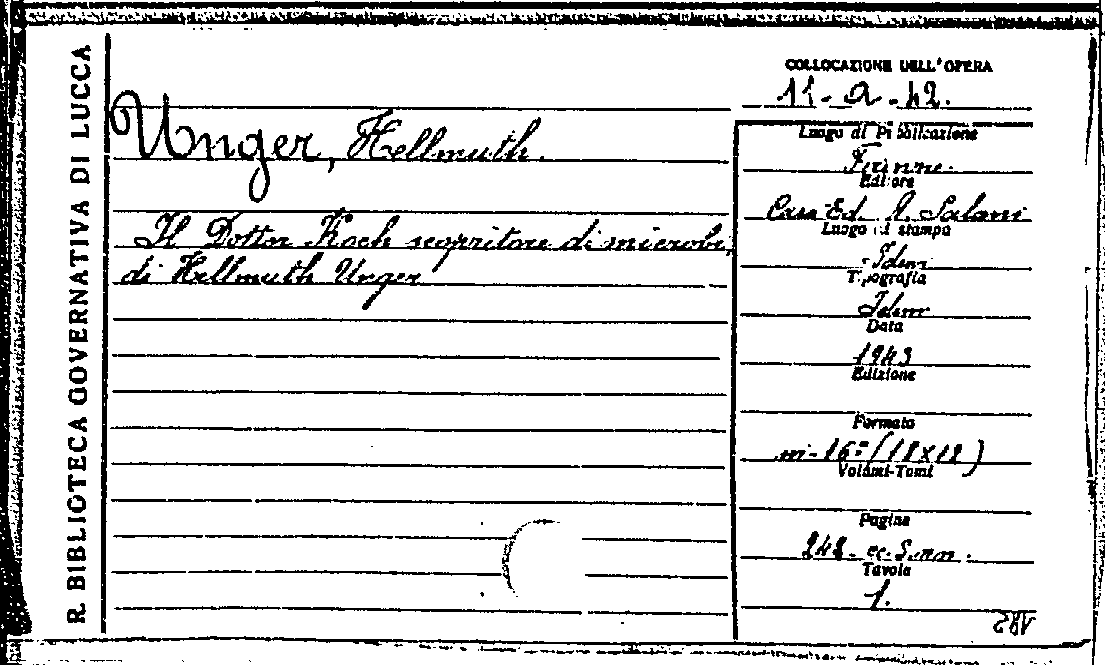 R. BIBLIOTECA GOVERNATIVA DI LUCCA
Unger, Hellmuth.
Il Dottor Koch scopritore di microbi,
di Hellmuth Unger
COLLOCAZIONE DELL'OPERA
11-a-42.
Luogo di Pubblicazione
Firenze.
Editore
Casa Ed. A. Salani
Luogo di stampa
Idem
Tipografia
Idem
Data
1943
Edizione
Formato
in-16° (18x12)
Volumi-Tomi
Pagine
248.
Tavole
1.